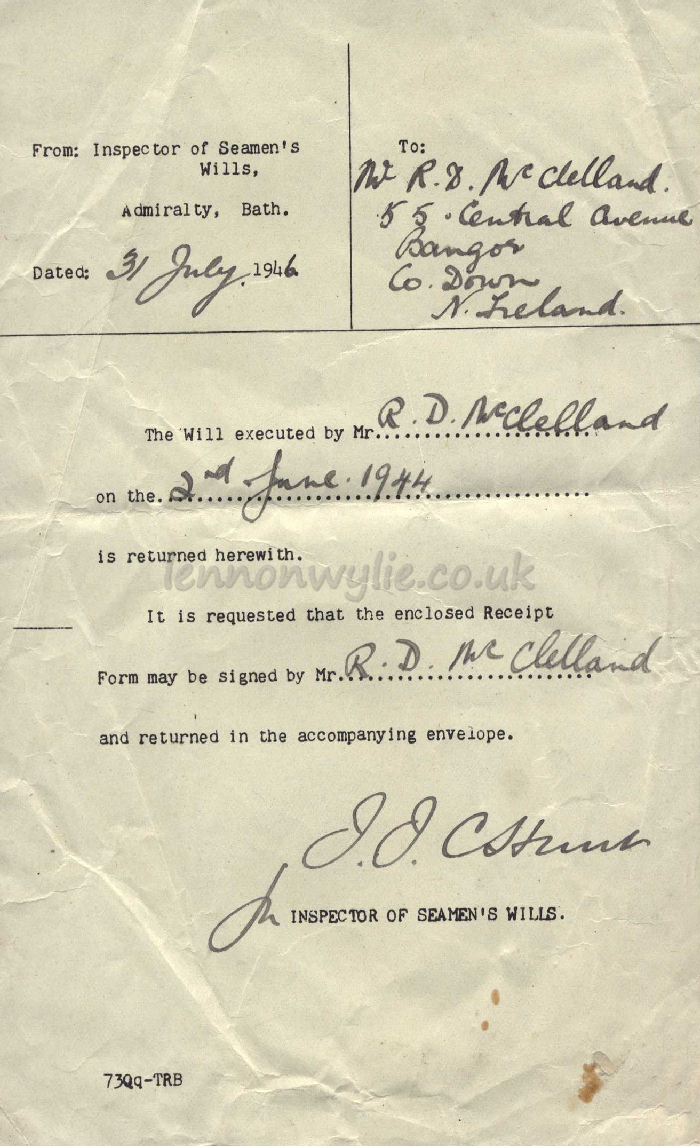 From: Inspector of Seamen's
Wills,
Admiralty, Bath.
Dated: 31 July, 1946
To:
Mr R. D. McClelland.
55. Central Avenue
Bangor
Co. Down
N. Ireland.
The Will executed by Mr. R. D. McClelland
on the. 2nd June. 1944
is returned herewith.
lennonwylie.co.uk
It is requested that the enclosed Receipt
Form may be signed by Mr. R. D. McClelland
and returned in the accompanying envelope.
J. J.
INSPECTOR OF SEAMEN'S WILLS.
73Qq-TRB